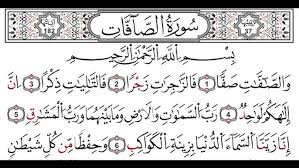 سُورَةُ الصَّافَّاتِ
بِسْمِ اللَّهِ الرَّحْمَٰنِ الرَّحِيمِ
وَالصَّافَّاتِ صَفًّا ① فَالزَّاجِرَاتِ زَجْرًا ② فَالتَّالِيَاتِ ذِكْرًا ③ إِنَّ
إِلَٰهَكُمْ لَوَاحِدٌ ④ رَبُّ السَّمَاوَاتِ وَالْأَرْضِ وَمَا بَيْنَهُمَا وَرَبُّ الْمَشَارِقِ ⑤
إِنَّا زَيَّنَّا السَّمَاءَ الدُّنْيَا بِزِينَةٍ الْكَوَاكِبِ ⑥ وَحِفْظًا مِنْ كُلِّ شَيْطَانٍ